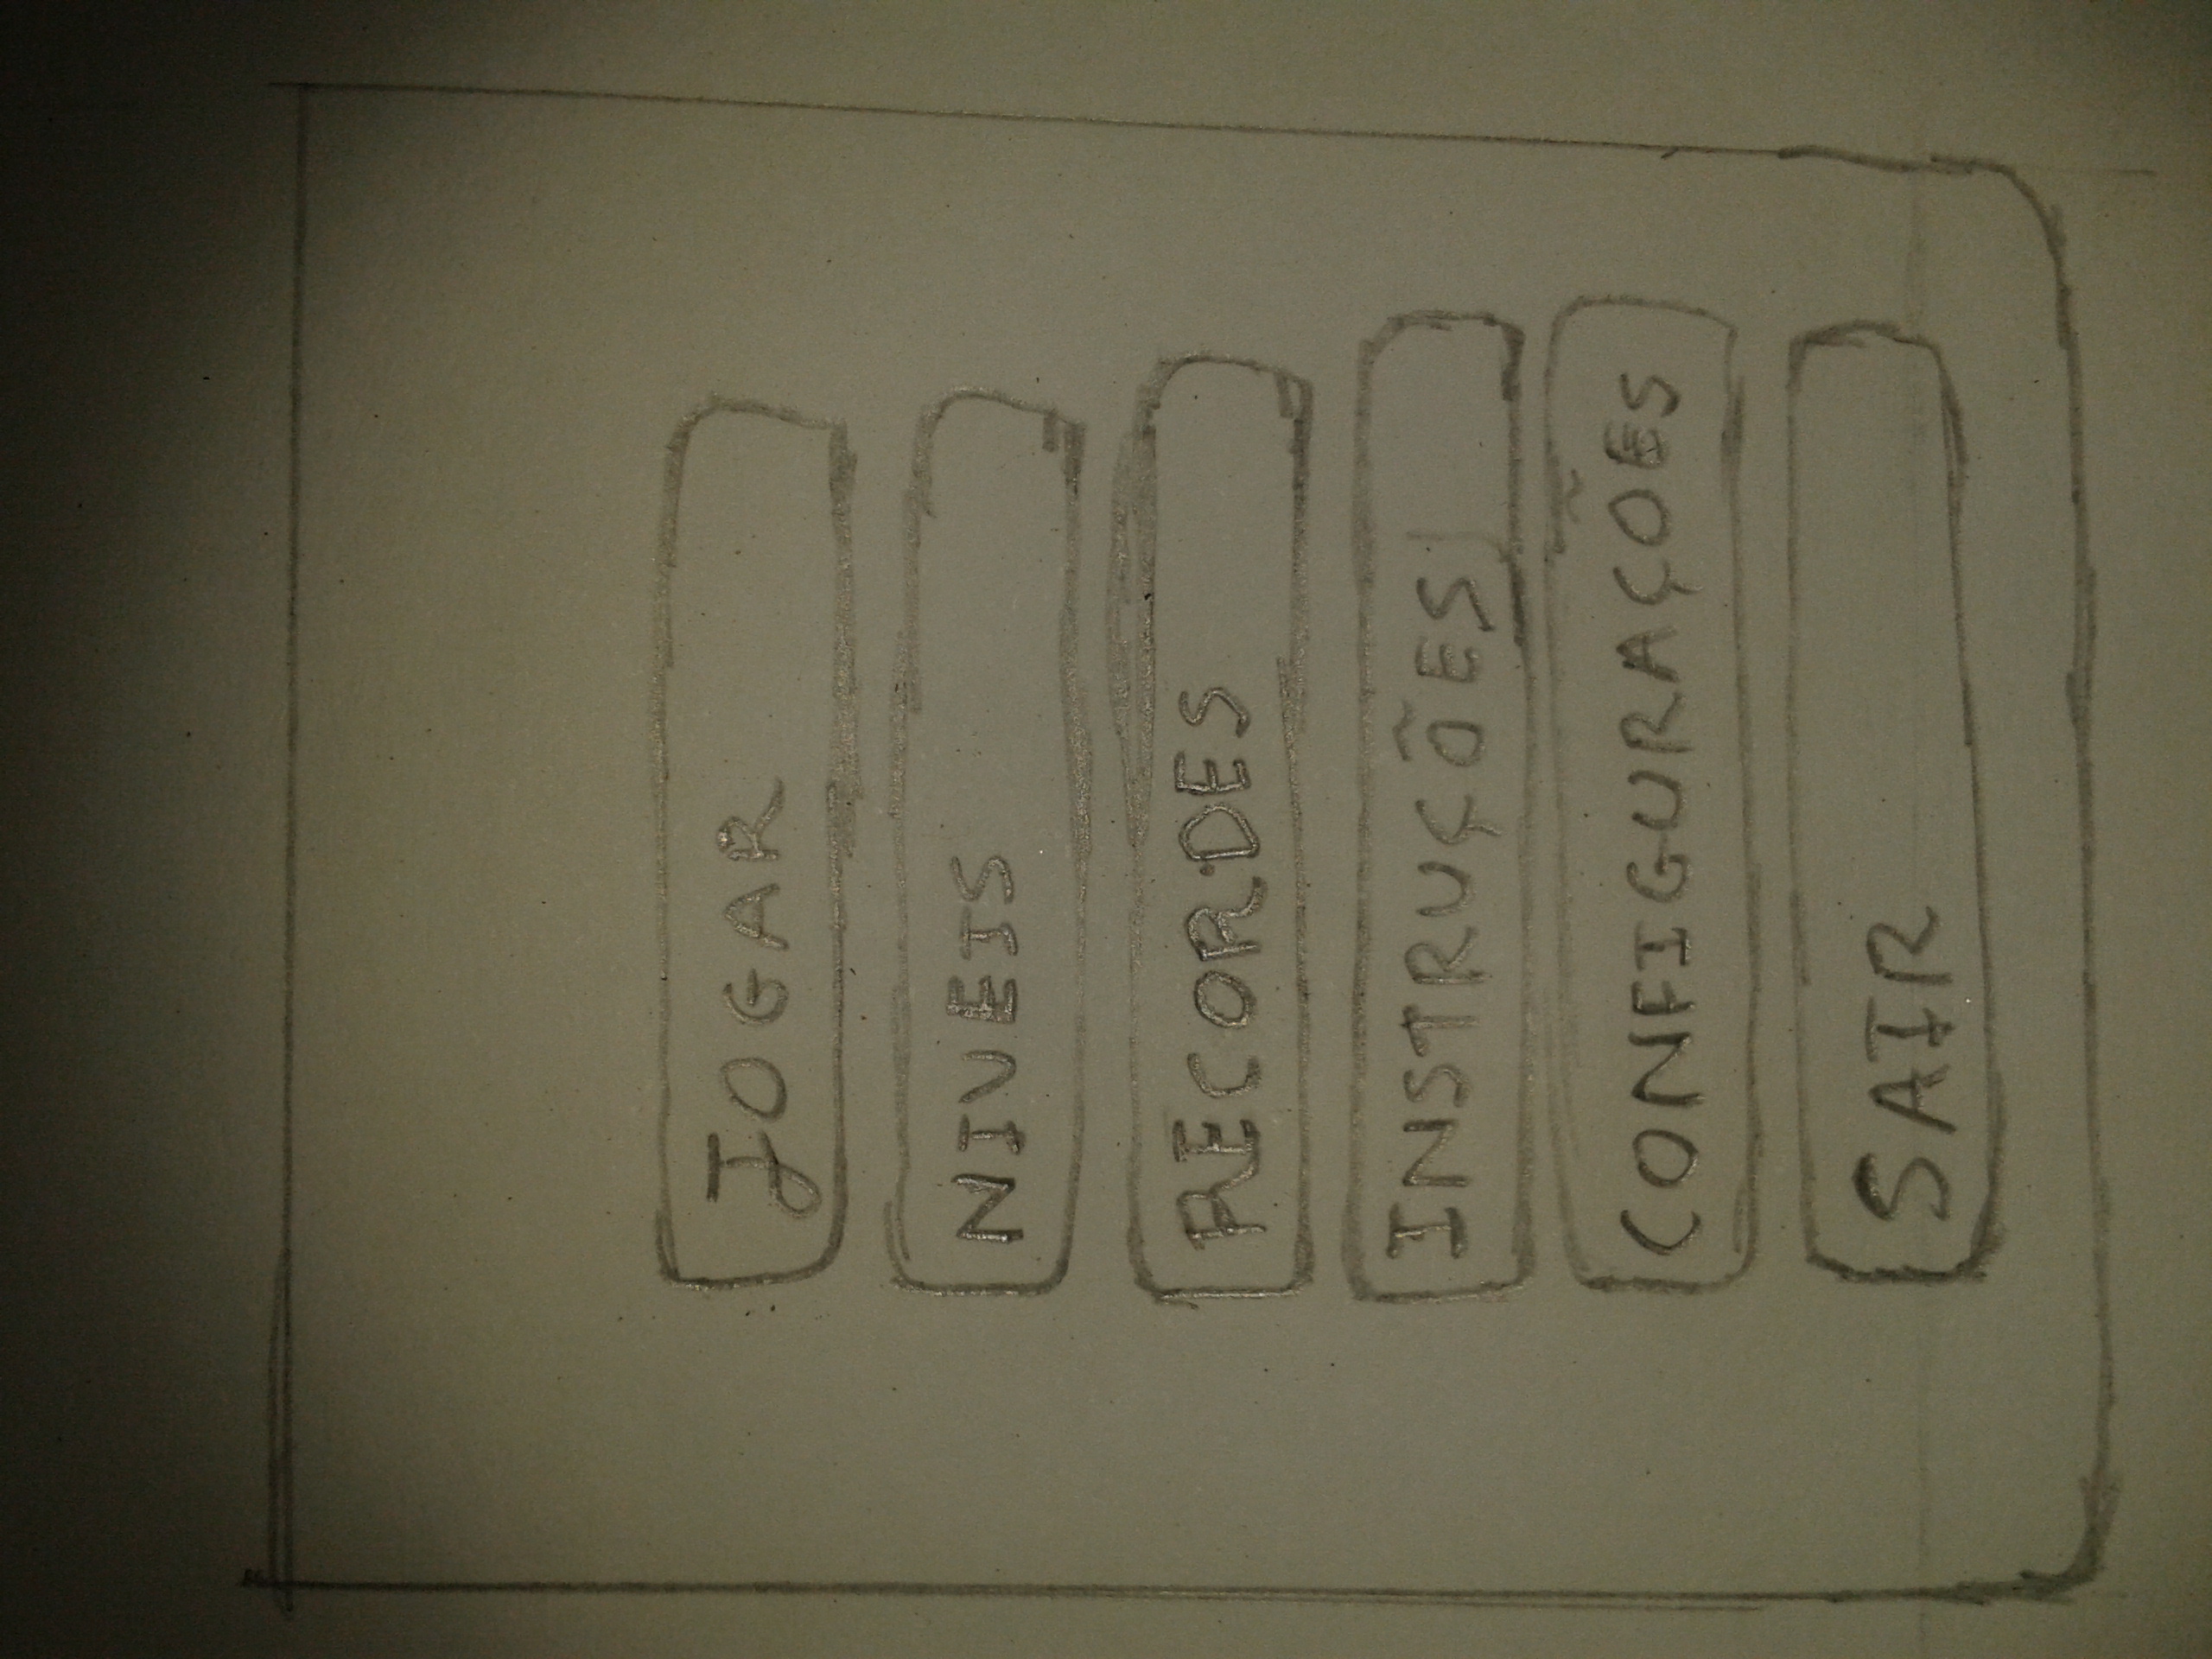 JOGAR
NIVEIS
RECORDES
INSTRUÇÕES
CONFIGURAÇÕES
SAIR